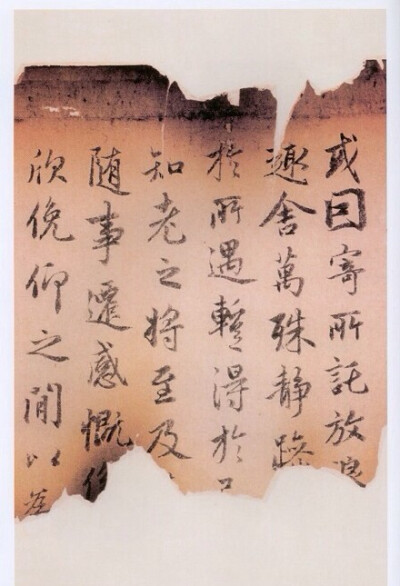 或因寄所託放
趣舍萬殊靜躁
於所遇暫得於
知老之將至及
随事遷感慨係
欣俛仰之閒以為